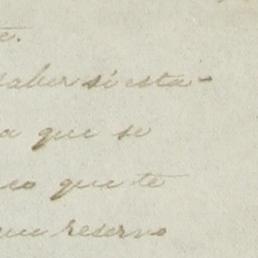 te.
saber si esta-
a que se
co que te
que reservo